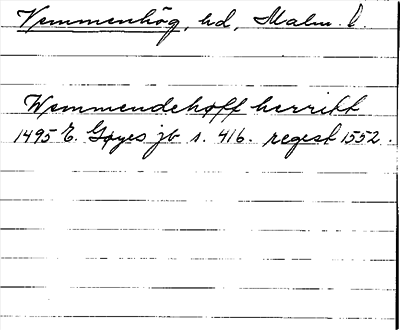 Vemmenhög, hd, Malm. l.
Wemmendehøff herritt
1495 E. Gøyes jb s. 416. regest 1552.